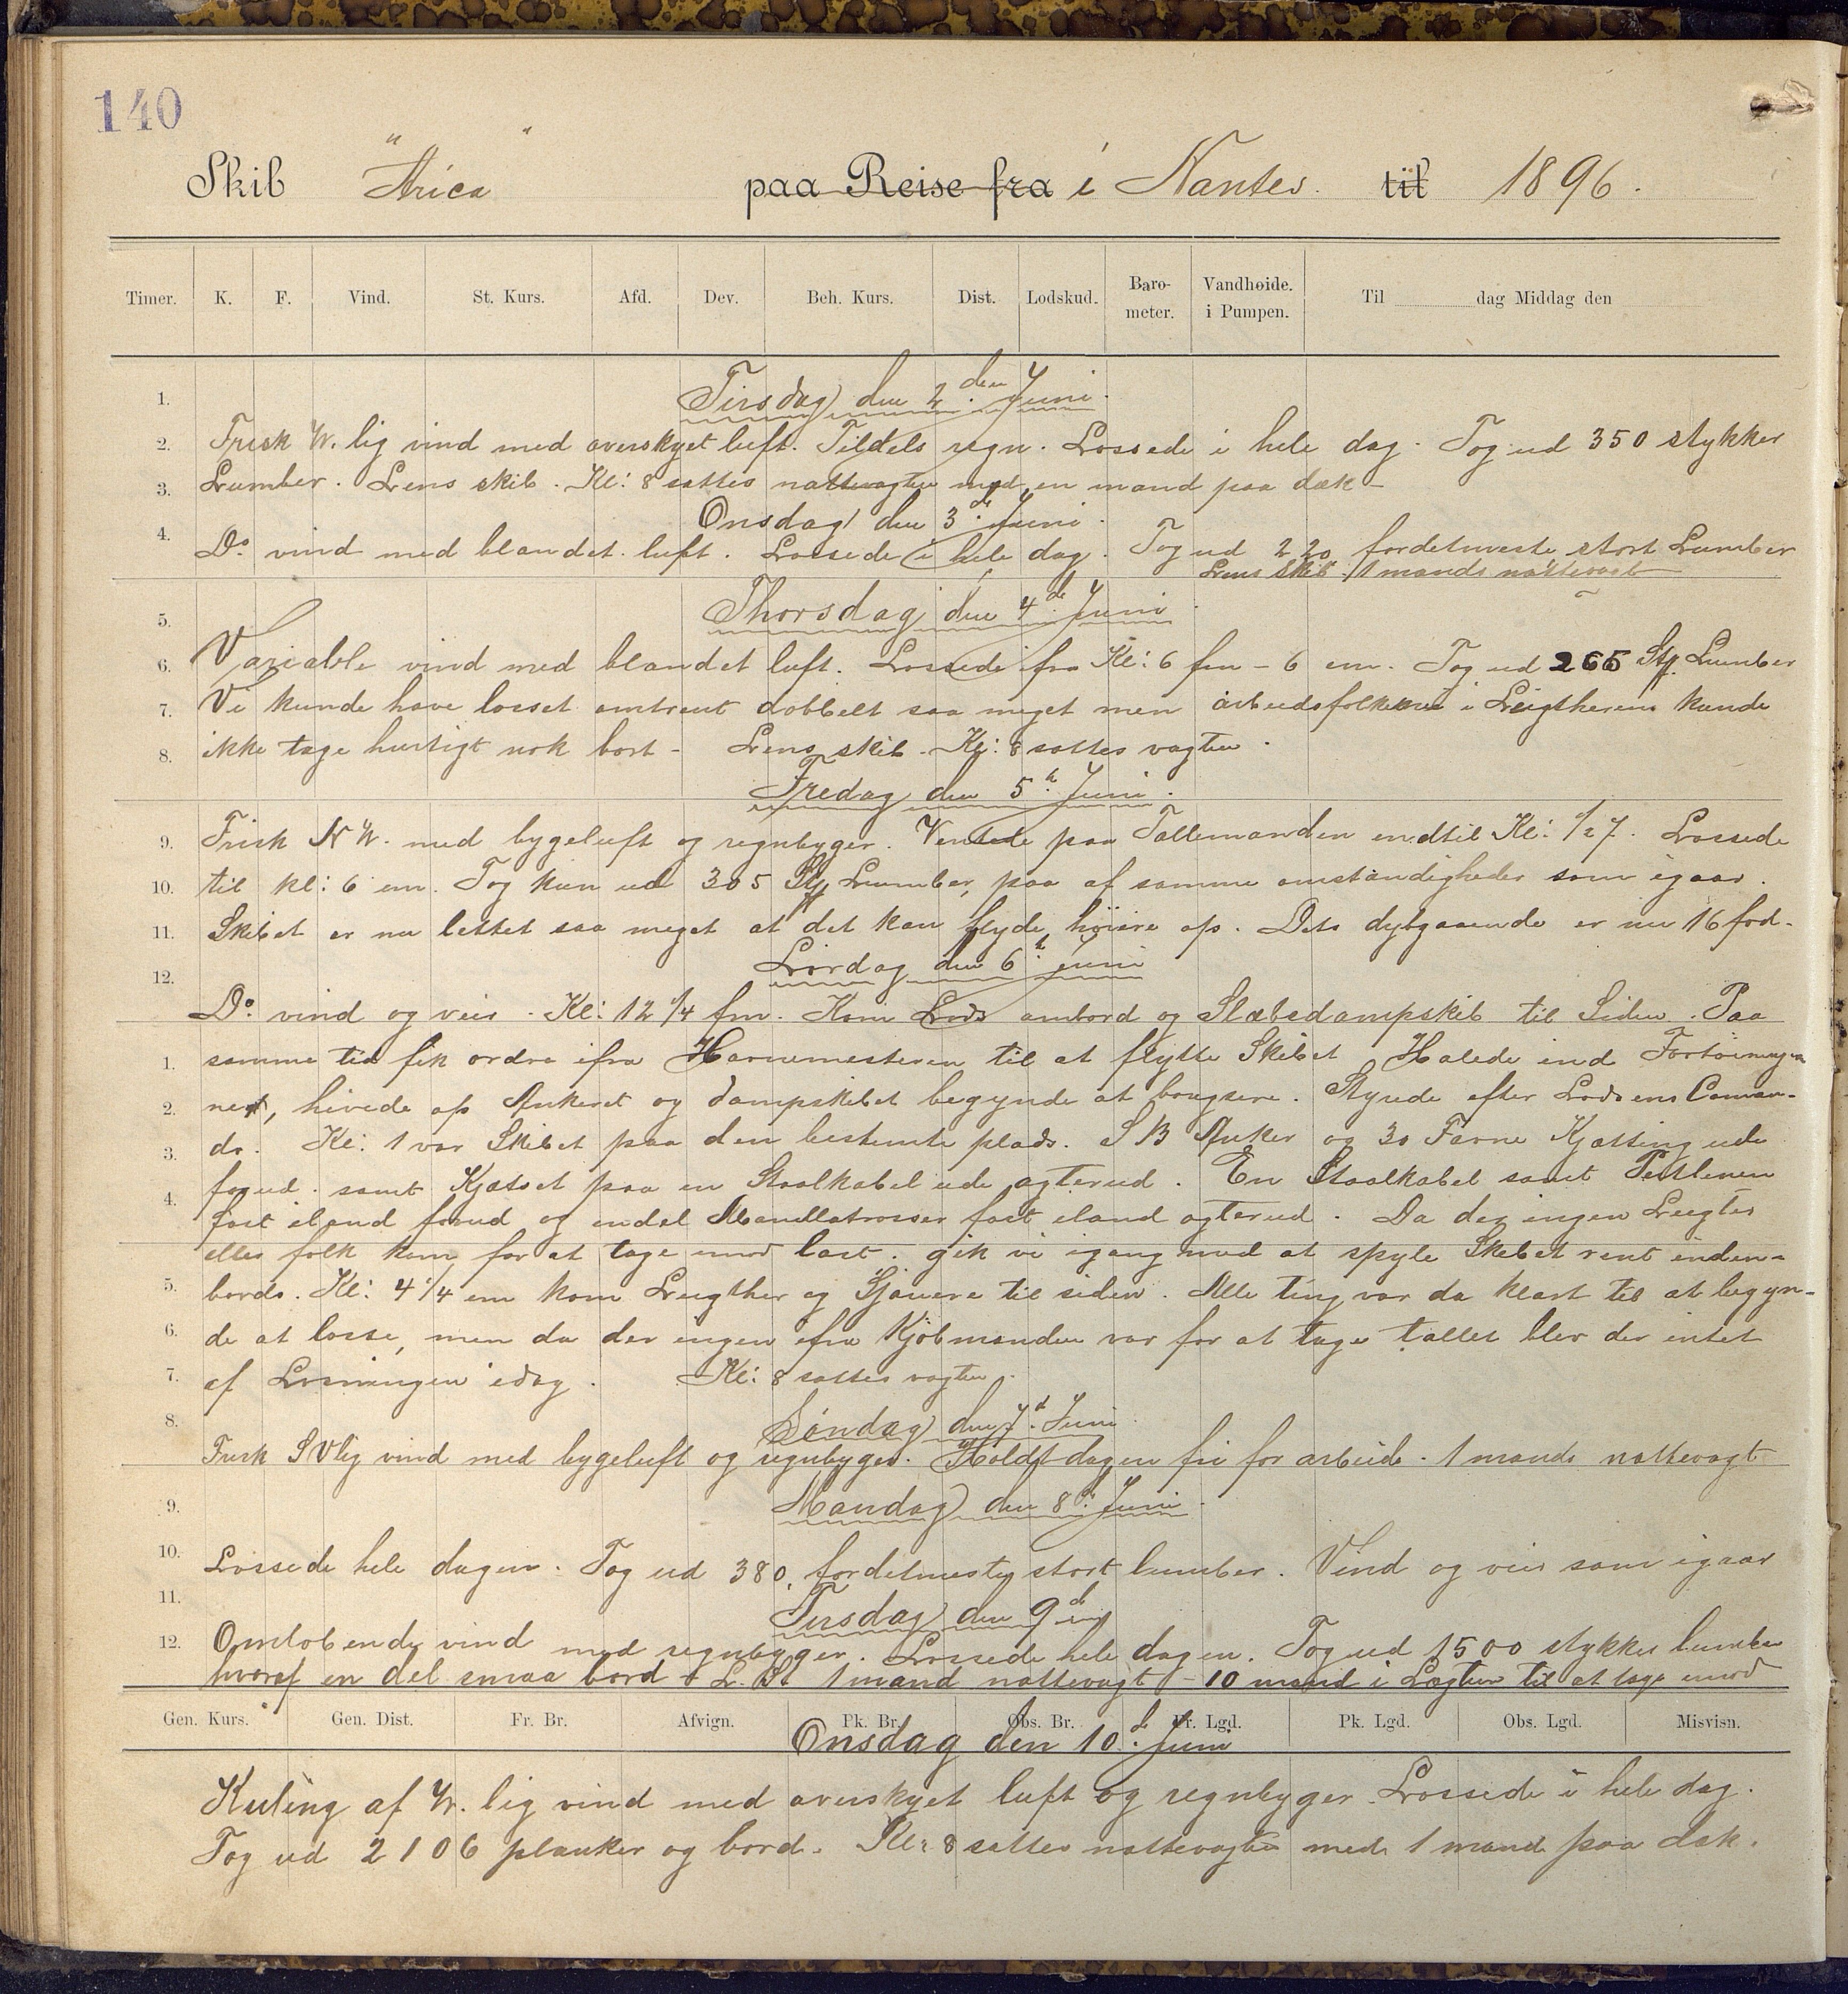 140
Skib "Arica" paa Reise fra i Nantes. til 1896.
Timer. K. F. Vind. St. Kurs. Afd. Dev. Beh. Kurs. Dist. Lodskud. Baro-meter. Vandhøide. i Pumpen. Til dag Middag den
1. Tirsdag den 2den Juni.
2. Frisk W. lig vind med overskyet luft. Tildels regn. Lossede i hele dag. Tog ud 350 stykker
3. Lumber. Lens skib. Kl: 8 sattes nattevagten med en mand paa dæk
Onsdag den 3d. Juni.
4. Do. vind med blandet luft. Lossede i hele dag. Tog ud 220 fordetmeste stort Lumber
Lens Skib. 1 mands nattevagt
5. Thorsdag den 4de. Juni.
6. Variable vind med blandet luft. Lossede fra Kl: 6 fm - 6 em. Tog ud 265 Stk. Lumber
7. Vi kunde have losset omtrent dobbelt saa meget men arbeidsfolkene i Leigtherene kunde
8. ikke tage hurtigt nok bort - Lens skib. Kl: 8 sattes vagten.
Fredag den 5te. Juni.
9. Frisk NW. med bygeluft og regnbyger. Ventede paa Tallemanden indtil Kl: 1/2 7. Lossede
10. til kl: 6 em. Tog kun ud 305 Stk Lumber, paa af samme omstændigheder som igaar.
11. Skibet er nu lettet saa meget at det kan flyde høiere op. Dets dybgaaende er nu 16 fod.
Lørdag den 6te Juni
12.
Do. vind og veir. Kl: 12 1/4 fm. Kom Lods ombord og Slæbedampskib til Siden. Paa
1. samme tid fik ordre ifra Havnemesteren til at flytte Skibet. Halede ind Fortøiningen
2. ned, hivede op Ankeret og dampskibet begynde at bougsere. Styrede efter Lodsens Comman-
3. do. Kl: 1 var Skibet paa den bestemte plads. S B Anker og 30 Favne Kjætting ude
4. forud. samt Kjætset paa en Staalkabel ude agterud. En Staalkabel samt Pertlinen
fast iland forud og endel Manillatrosser fast iland agterud. Da der ingen Leigter
eller folk kom for at tage imod last. gik vi igang med at spyle Skibet rent inden-
5. bords. Kl: 4 1/4 em kom Leigther og Sjauere til siden. Alle ting var da klart til at begyn-
6. de at losse, men da der ingen ifra Kjøbmanden var for at tage tallet blev der intet
7. af Losningen idag. Kl: 8 sattes vagten.
8. Søndag den 7d. Juni
Frisk SVlig vind med bygeluft og regnbyger. Holdt dagen fri for arbeide. 1 mands nattevagt
9. Mandag den 8d. Juni.
10. Lossede hele dagen. Tog ud 380, fordetmeste stort lumber. Vind og veir som igaar
11. Tirsdag den 9de
12. Omløbende vind med regnbyger. Lossede hele dagen. Tog ud 1500 stykker lumber
hvoraf en del smaa bord L. St 1 mand nattevagt - 10 mand i Lægten til at tage imod
Gen. Kurs. Gen. Dist. Fr. Br. Afvign. Pk. Br. Obs. Br. Fr. Lgd. Pk. Lgd. Obs. Lgd. Misvisn.
Onsdag den 10d. Juni
Kuling af W. lig vind med overskyet luft og regnbyger. Lossede i hele dag.
Tog ud 2106 planker og bord. Kl: 8 sattes nattevagten med 1 mand paa dæk.